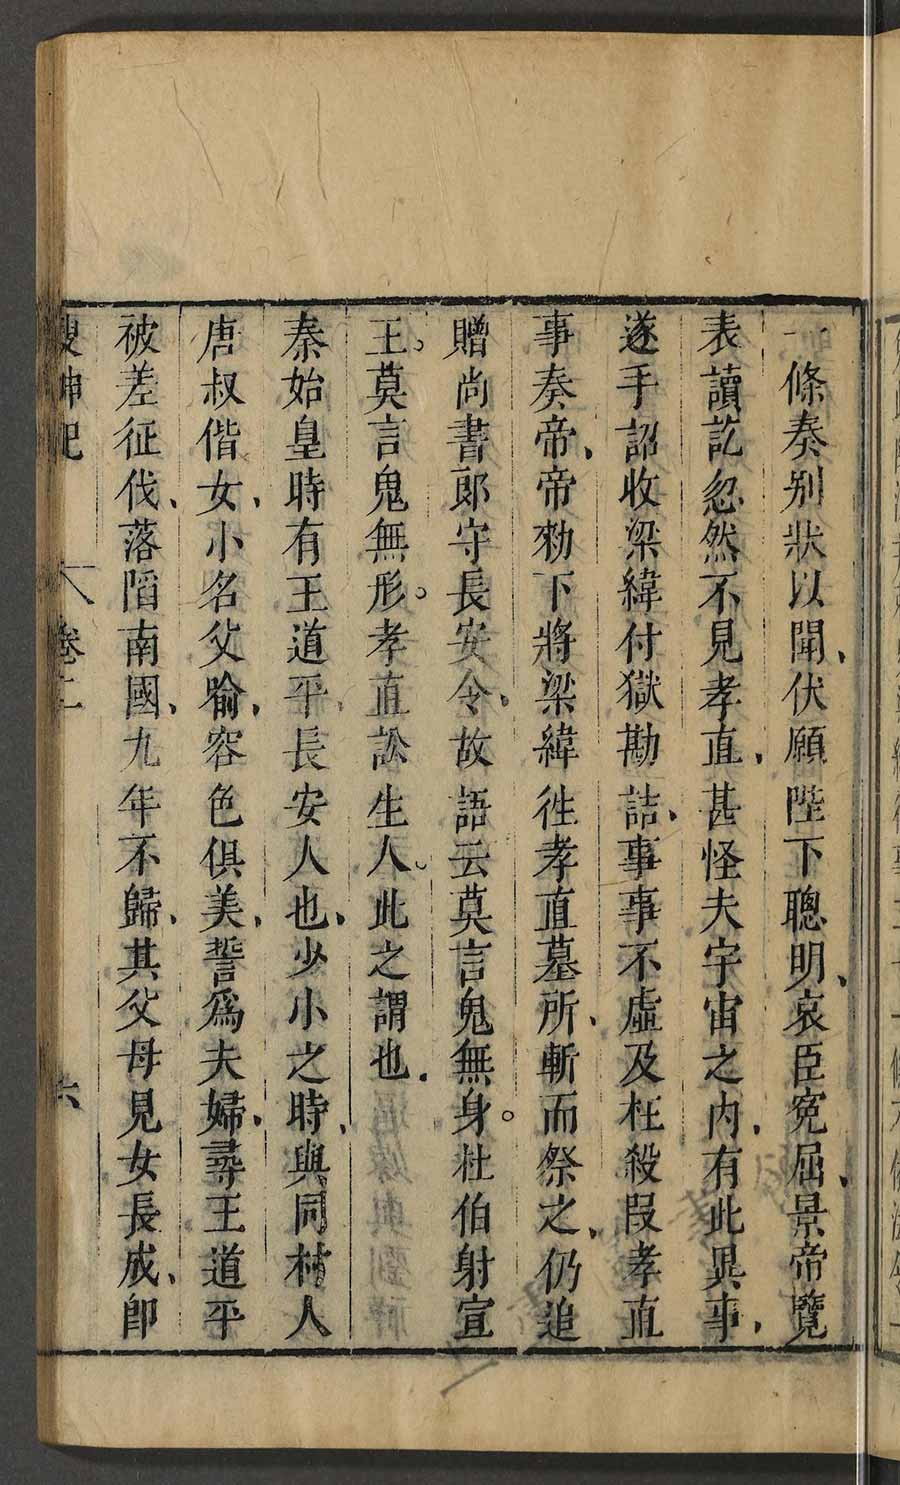 一條奏别狀以聞、伏願陛下聰明、哀臣寃屈、景帝覽
表讀訖忽然不見孝直、甚怪夫宇宙之内、有此異事、
遂手詔收梁緯付獄勘詰、事事不虛及枉殺叚孝直
事奏帝、帝勑下將梁緯徃孝直墓所、斬而祭之、仍追
贈尚書郎守長安令、故語云莫言鬼無身。杜伯射宣
王。莫言鬼無形。孝直訟生人。此之謂也.
秦始皇時有王道平、長安人也、少小之時、與同村人
唐叔偕女、小名父喻、容色俱美、誓爲夫婦、尋王道平
被差征伐、落䧟南國、九年不歸、其父母見女長成、卽
搜神記 卷二 六